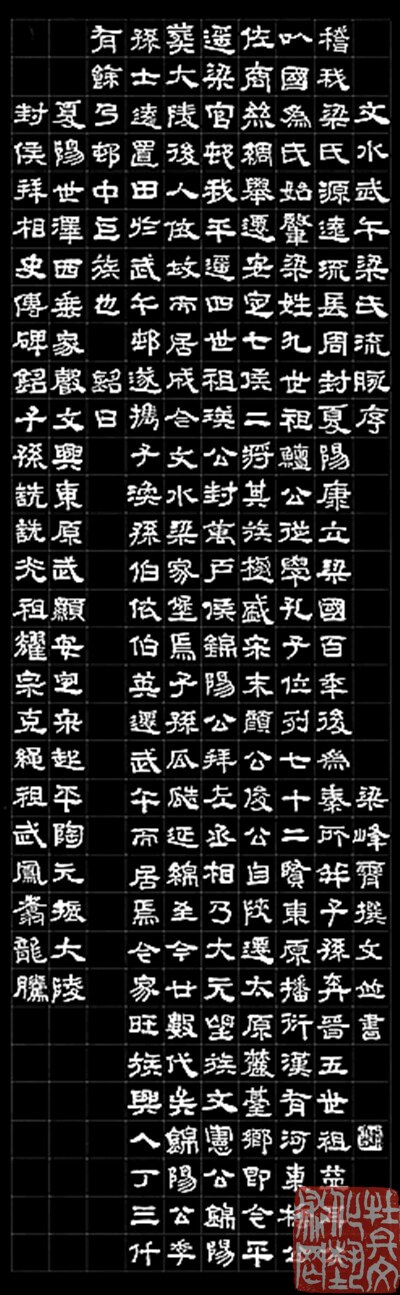 文水武午梁氏流脈序 梁峰齊撰文並書
稽我梁氏源遠流長周封夏陽康立梁國百年後為秦所并子孫奔晉五世祖
㕥國為氏始肇梁姓九世祖鱣公從學孔子位列七十二賢東原播衍漢有河東
佐商絲綢舉遷安定七侯二將其族極盛宋末顏公俊公自陝遷太原麓臺鄉即今平
遥梁官邨我平遥四世祖瑛公封萬戶侯錦陽公拜左丞相乃大元望族文憲公錦陽
葬大陵後人依坟而居成今文水梁家堡焉子孫瓜瓞延綿至今廿數代矣錦陽公季
孫士遠置田於武午邨遂攜子渙孫伯依伯英遷武午而居焉今家旺族興人丁三仟
有餘乃邨中巨族也 銘曰
夏陽世澤西垂家聲文興東原武顯安定宋起平陶元振大陵
封侯拜相史傳碑銘子孫詵詵光祖耀宗克繩祖武鳳翥龍騰